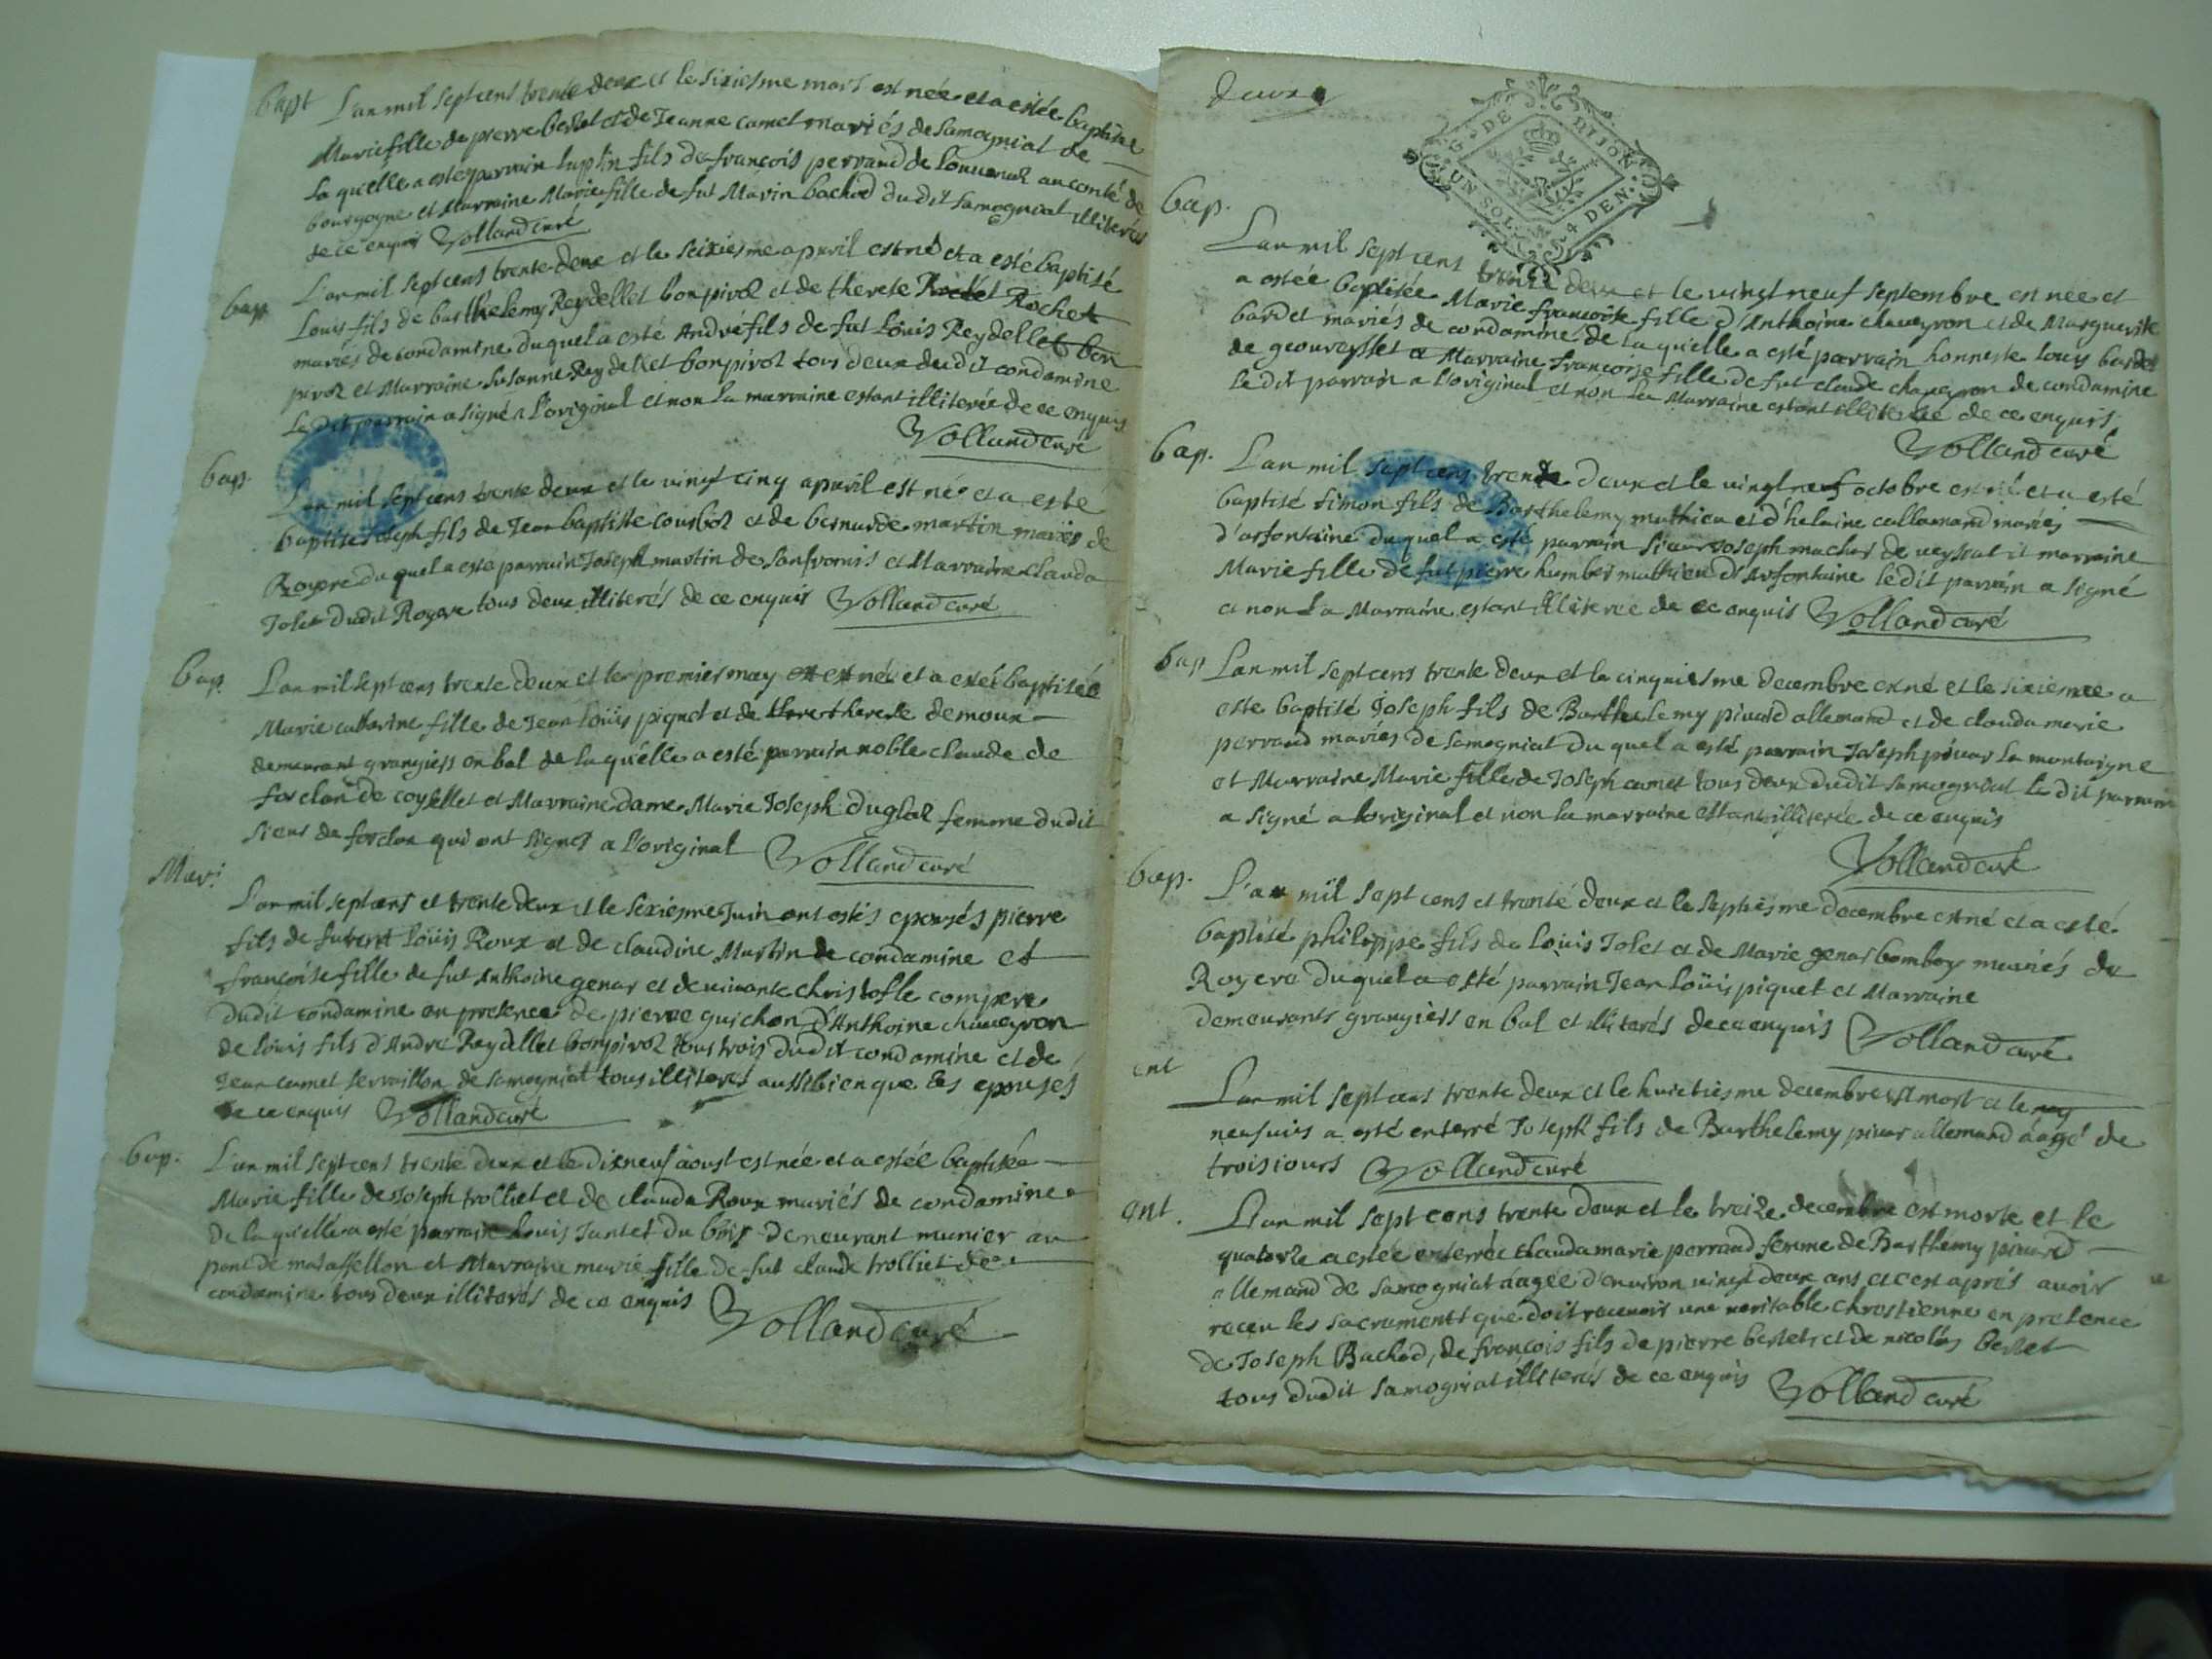 bapt L'an mil sept cens trente deux et le sixiesme mars est née et a estée baptisée
Marie fille de pierre berlet et de Jeanne camet mariés de Samogniat de
la qu'elle a esté parrain lupicin fils de françois perraud de au conté de
bourgogne et Marraine Marie fille de fut Marin bachod du dit Samogniat illiterés
de ce enquis Volland curé
bap L'an mil sept cens trente deux et le seiziesme apvril est né et a esté baptisé
Louis fils de barthelemy Reydellet bonpivol et de therese Rochet Rochet
mariés de condamine duquel a esté André fils de fut Louis Reydellet bon
pivol et Marraine Susanne Reydellet bonpivol tous deux dudit condamine
Le dit parrain a signé a l'original et non la marraine estant illiterée de ce enquis
Volland curé
bap. L'an mil sept cens trente deux et le vingt cinq apvril est né et a esté
baptisé Joseph fils de Jean baptiste courbol et de bernarde martin mariés de
Royere du quel a esté parrain Joseph martin de et Marraine clauda
Jolet dudit Royere tous deux illiterés de ce enquis Volland curé
bap. L'an mil sept cens trente deux et le premier may est est née et a estéé baptiséé
Marie catherine fille de Jean loüis piquet et de therese demoux
demeurant grangiers en bal de la qu'elle a esté parrain noble claude de
forclan de coysellet et Marraine dame Marie Joseph duglas femme dudit
sieur de forclan qui ont signés a l'original Volland curé
Mari. L'an mil sept cens et trente deux et le sixiesme Juin ont estés epousés pierre
fils de fut Loüis Roux et de claudine Martin de condamine et
françoise fille de fut Anthoine genar et de vivante christofle compere
dudit condamine en presence de pierre guichon d'Anthoine chaveyron
de loüis fils d'André Reydellet bonpivol tous trois dudit condamine et de
Jean camet servaillon de Samogniat tous illiterés aussibien que les epousés
de ce enquis Volland curé
bap. L'an mil sept cens trente deux et le dixneuf aoust est née et a estée baptisée
Marie fille de Joseph trolliet et de clauda Roux mariés de condamine
de la qu'elle a esté parrain Louis Jantet du bois demeurant munier au
pont de matafellon et Marraine marie fille de fut claude trolliet de
condamine tous deux illiterés de ce enquis Volland curé
deux
G. DE DIJON
UN SOL. 4 DEN.
bap. L'an mil sept cens trente deux et le vingt neuf septembre est née et
a estée baptisée Marie françoise fille d'Anthoine chaveyron et de Marguerite
bardet mariés de condamine de la qu'elle a esté parrain honneste louys bardet
de geovreysset et Marraine françoise fille de fut claude chaveyron de condamine
Le dit parrain a l'original et non la Marraine estant illiterée de ce enquis
Volland curé
bap. L'an mil sept cens trente deux et le vingt neuf octobre est né et a esté
baptisé simon fils de Barthelemy mathieu et d'helaine callamand mariés
d'arfontaine du quel a esté parrain sieur Joseph machar de veyssiat et marraine
Marie fille de fut pierre humber mathieu d'Arfontaine ledit parrain a signé
et non La Marraine estant illiterée de ce enquis Volland curé
bap L'an mil sept cens trente deux et le cinquiesme decembre est né et le sixiesme a
esté baptisé Joseph fils de Barthelemy pivard allemand et de clauda marie
perraud mariés de Samogniat du quel a esté parrain Joseph pivar la montaigne
et Marraine Marie fille de Joseph camet tous deux dudit Samogniat le dit parrain
a signé a l'original et non la marraine estant illiterée de ce enquis
Volland curé
bap. L'an mil sept cens et trente deux et le septiesme decembre est né et a esté
baptisé philippe fils de loüis Jolet et de Marie genar bomboy mariés de
Royere duquel a esté parrain Jean loüis piquet et Marraine
demeurants grangiers en bal et illiterés de ce enquis Volland curé
ent L'an mil sept cens trente deux et le huictiesme decembre est mort et le
neufvies a esté enterré Joseph fils de Barthelemy pivar allemand áagé de
trois iours Volland curé
ent. L'an mil sept cens trente deux et le treize decembre est morte et le
quatorze a estée enterrée Clauda marie perraud femme de Barthelmy pivard
allemand de Samogniat áagée d'environ vingt deux ans et c'est aprés avoir
receu les sacrements que doit recevoir une veritable chrestienne en presence
de Joseph Bachod, de françois fils de pierre berlet, et de nicolas berlet
tous dudit Samogniat illiterés de ce enquis Volland curé